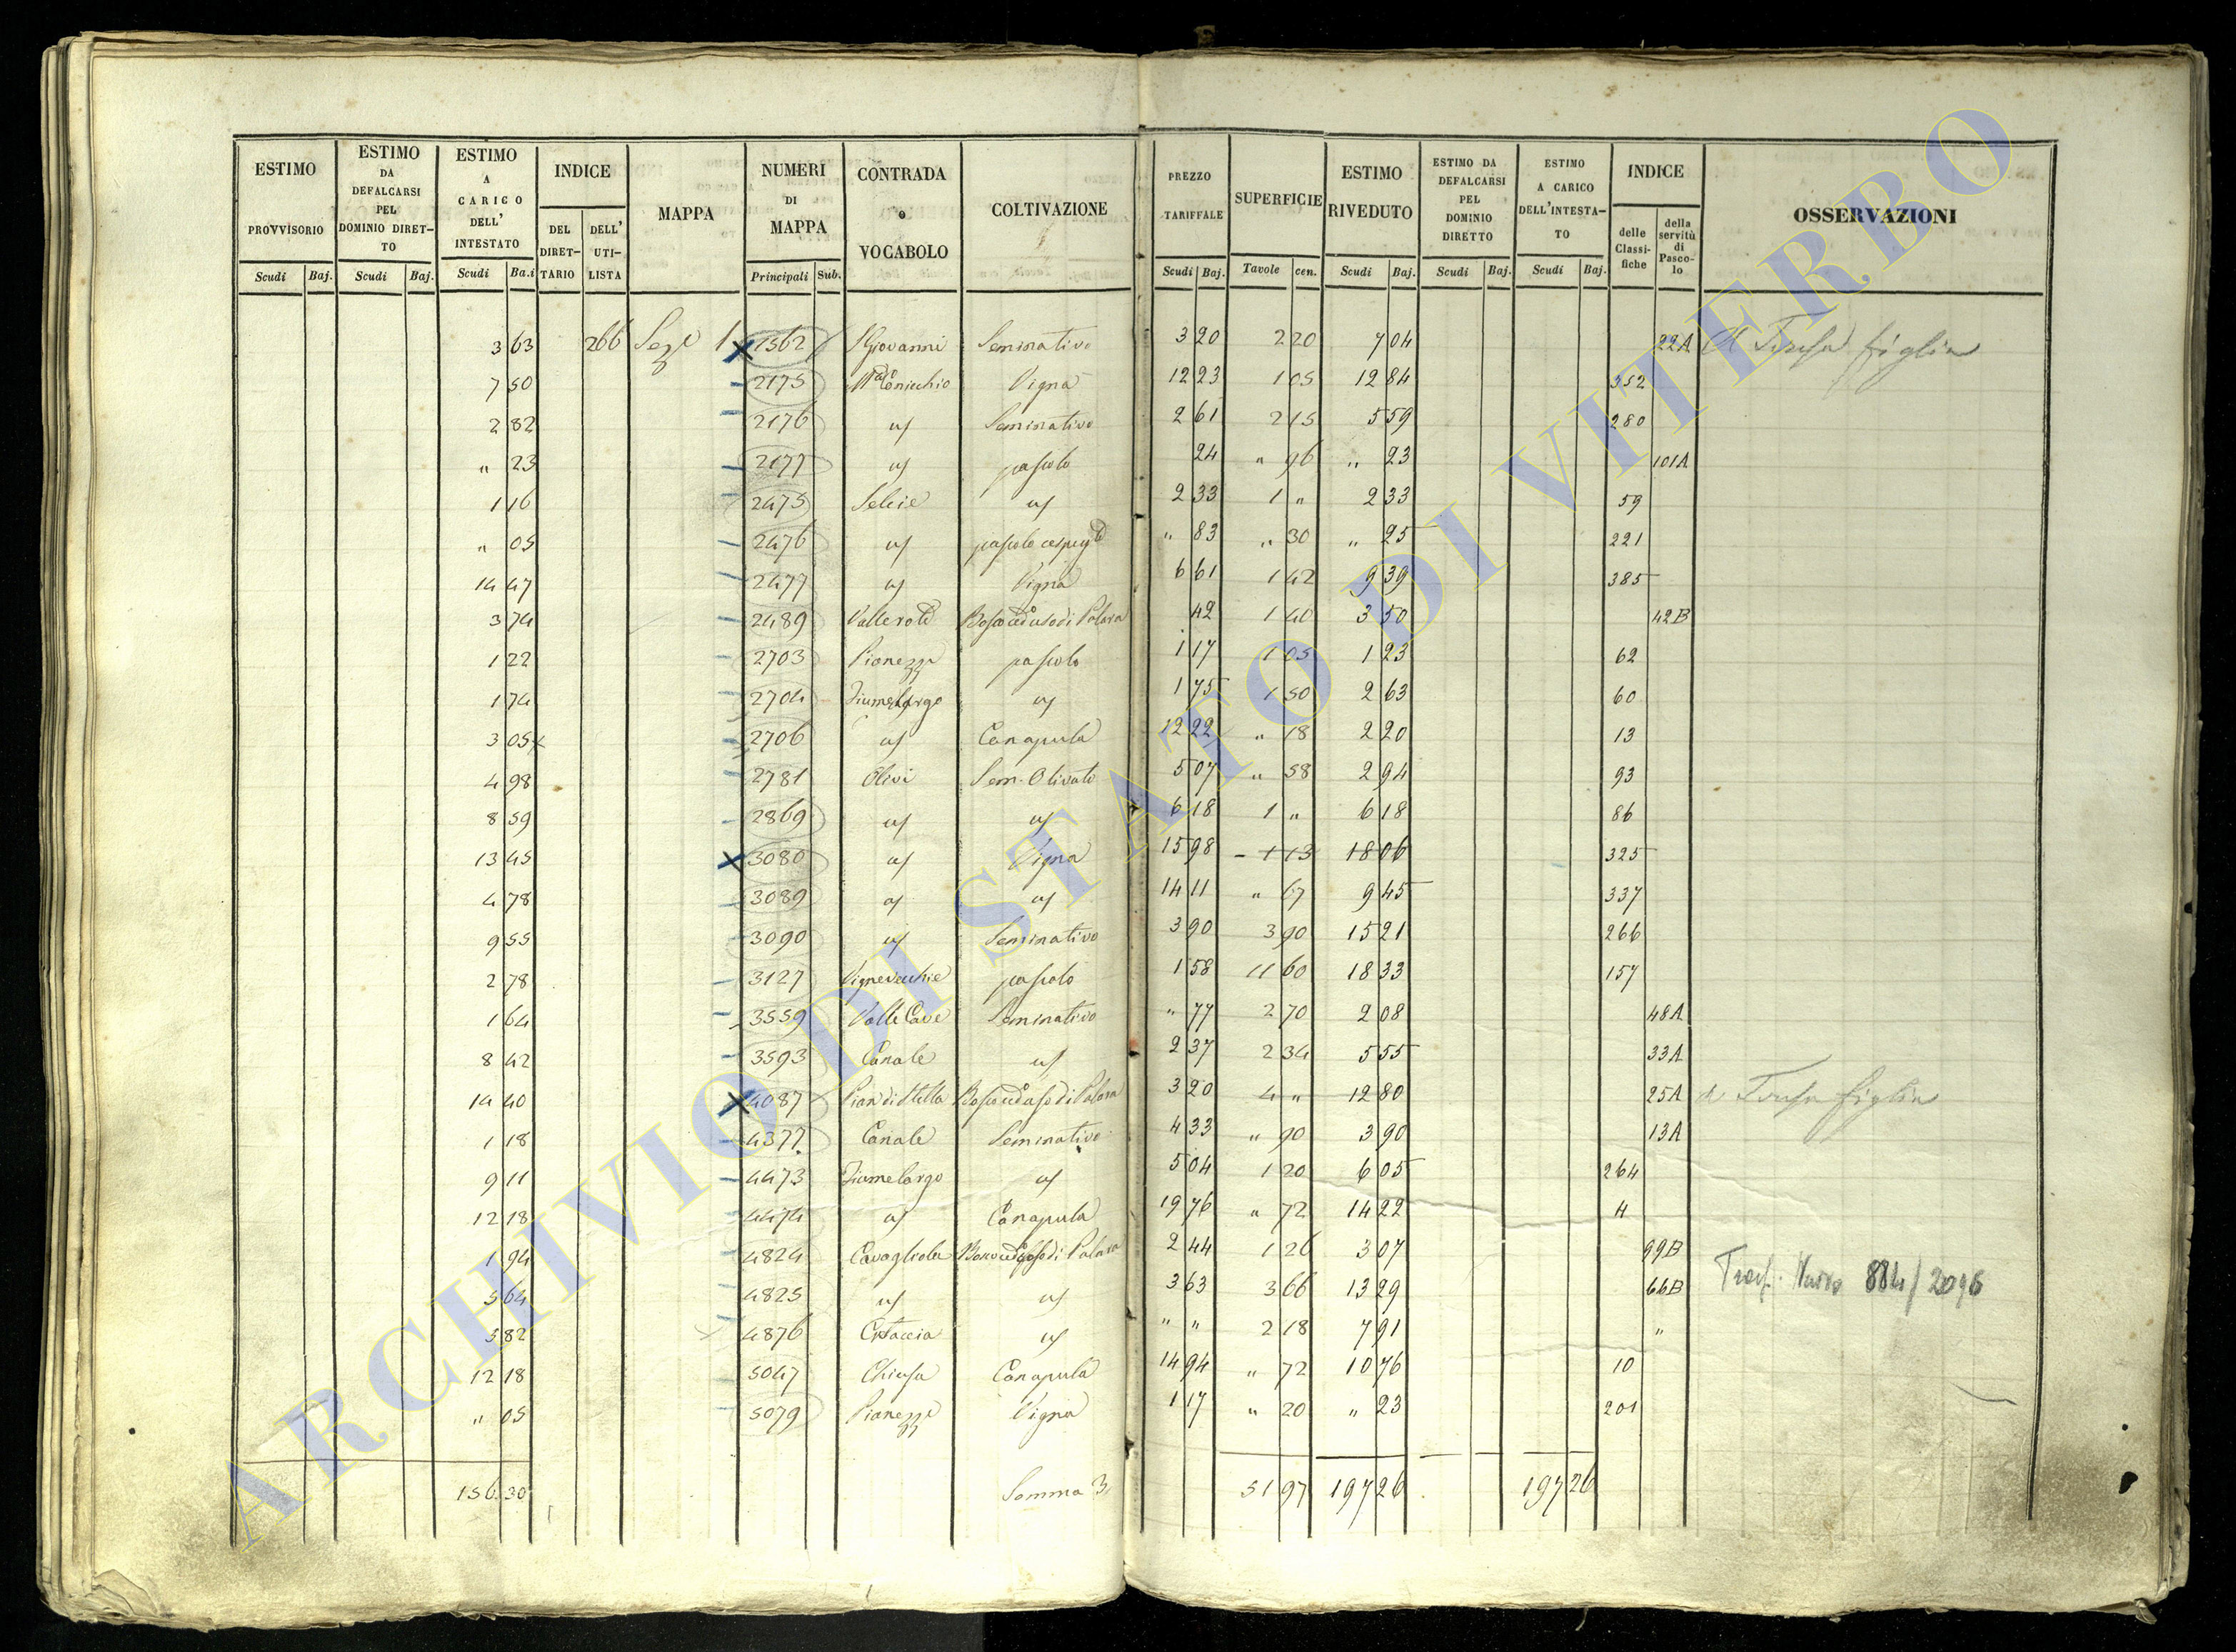 ESTIMO PROVVISORIO Scudi Baj. | ESTIMO DA DEFALCARSI PEL DOMINIO DIRETTO Scudi Baj. | ESTIMO A CARICO DELL' INTESTATO Scudi Ba.i | INDICE DEL DIRETTARIO DELL' UTILISTA | MAPPA | NUMERI DI MAPPA Principali Sub. | CONTRADA o VOCABOLO | COLTIVAZIONE | PREZZO TARIFFALE Scudi Baj. | SUPERFICIE Tavole cen. | ESTIMO RIVEDUTO Scudi Baj. | ESTIMO DA DEFALCARSI PEL DOMINIO DIRETTO Scudi Baj. | ESTIMO A CARICO DELL'INTESTATO Scudi Baj. | INDICE delle Classifiche della servitù di Pascolo | OSSERVAZIONI
3 63 266 Sez. 1 1362 S Giovanni Seminativo 3 20 2 20 7 04 22A figlia
7 50 2175 Vigna 12 23 1 05 12 84 352
2 82 2176 " Seminativo 2 61 2 15 5 59 280
" 23 2177 " pascolo 24 " 96 " 23 101A
1 16 2475 Selcie " 2 33 1 " 2 33 59
" 05 2476 " pascolo cespug.to " 83 " 30 " 25 221
14 47 2477 " Vigna 6 61 1 42 9 39 385
3 74 2489 Bosco ceduo di Palara 42 1 40 3 50 42B
1 22 2703 Pianezze pascolo 1 17 1 05 1 23 62
1 74 2704 Fiumelargo " 1 75 1 50 2 63 60
3 05 2706 " Canapula 12 22 " 18 2 20 13
4 98 2781 Olivi Sem. Olivato 5 07 " 58 2 94 93
8 59 2869 " " 6 18 1 " 6 18 86
13 45 3080 " Vigna 15 98 1 13 18 06 325
4 78 3089 " " 14 11 " 67 9 45 337
9 55 3090 " Seminativo 3 90 3 90 15 21 266
2 78 3127 Vignevecchie pascolo 1 58 11 60 18 33 157
1 64 3559 Valle Cave Seminativo " 77 2 70 2 08 48A
8 42 3593 Canale " 2 37 2 34 5 55 33A
14 40 4087 Pian di Stella Bosco ceduo di Palara 3 20 4 " 12 80 25A figlia
1 18 4377 Canale Seminativo 4 33 " 90 3 90 13A
9 11 4473 Fiumelargo " 5 04 1 20 6 05 264
12 18 4474 " Canapula 19 76 " 72 14 22 4
1 94 4824 Cavagliola Bosco ceduo di Palara 2 44 1 26 3 07 99B
5 64 4825 " " 3 63 3 66 13 29 66B 884/2096
5 82 4876 " " " 2 18 7 91 "
12 18 5047 Chiusa Canapula 14 94 " 72 10 76 10
" 05 5079 Pianezze Vigna 1 17 " 20 " 23 201
156 30 Somma 51 97 197 26 197 26
ARCHIVIO DI STATO DI VITERBO